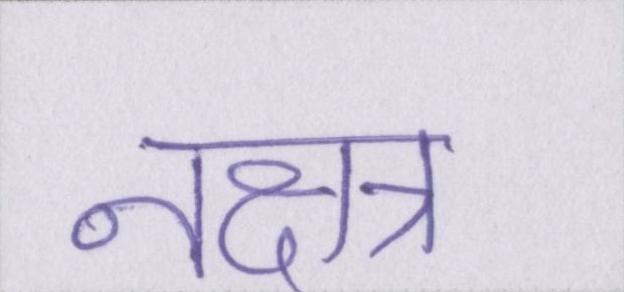 नक्षत्र